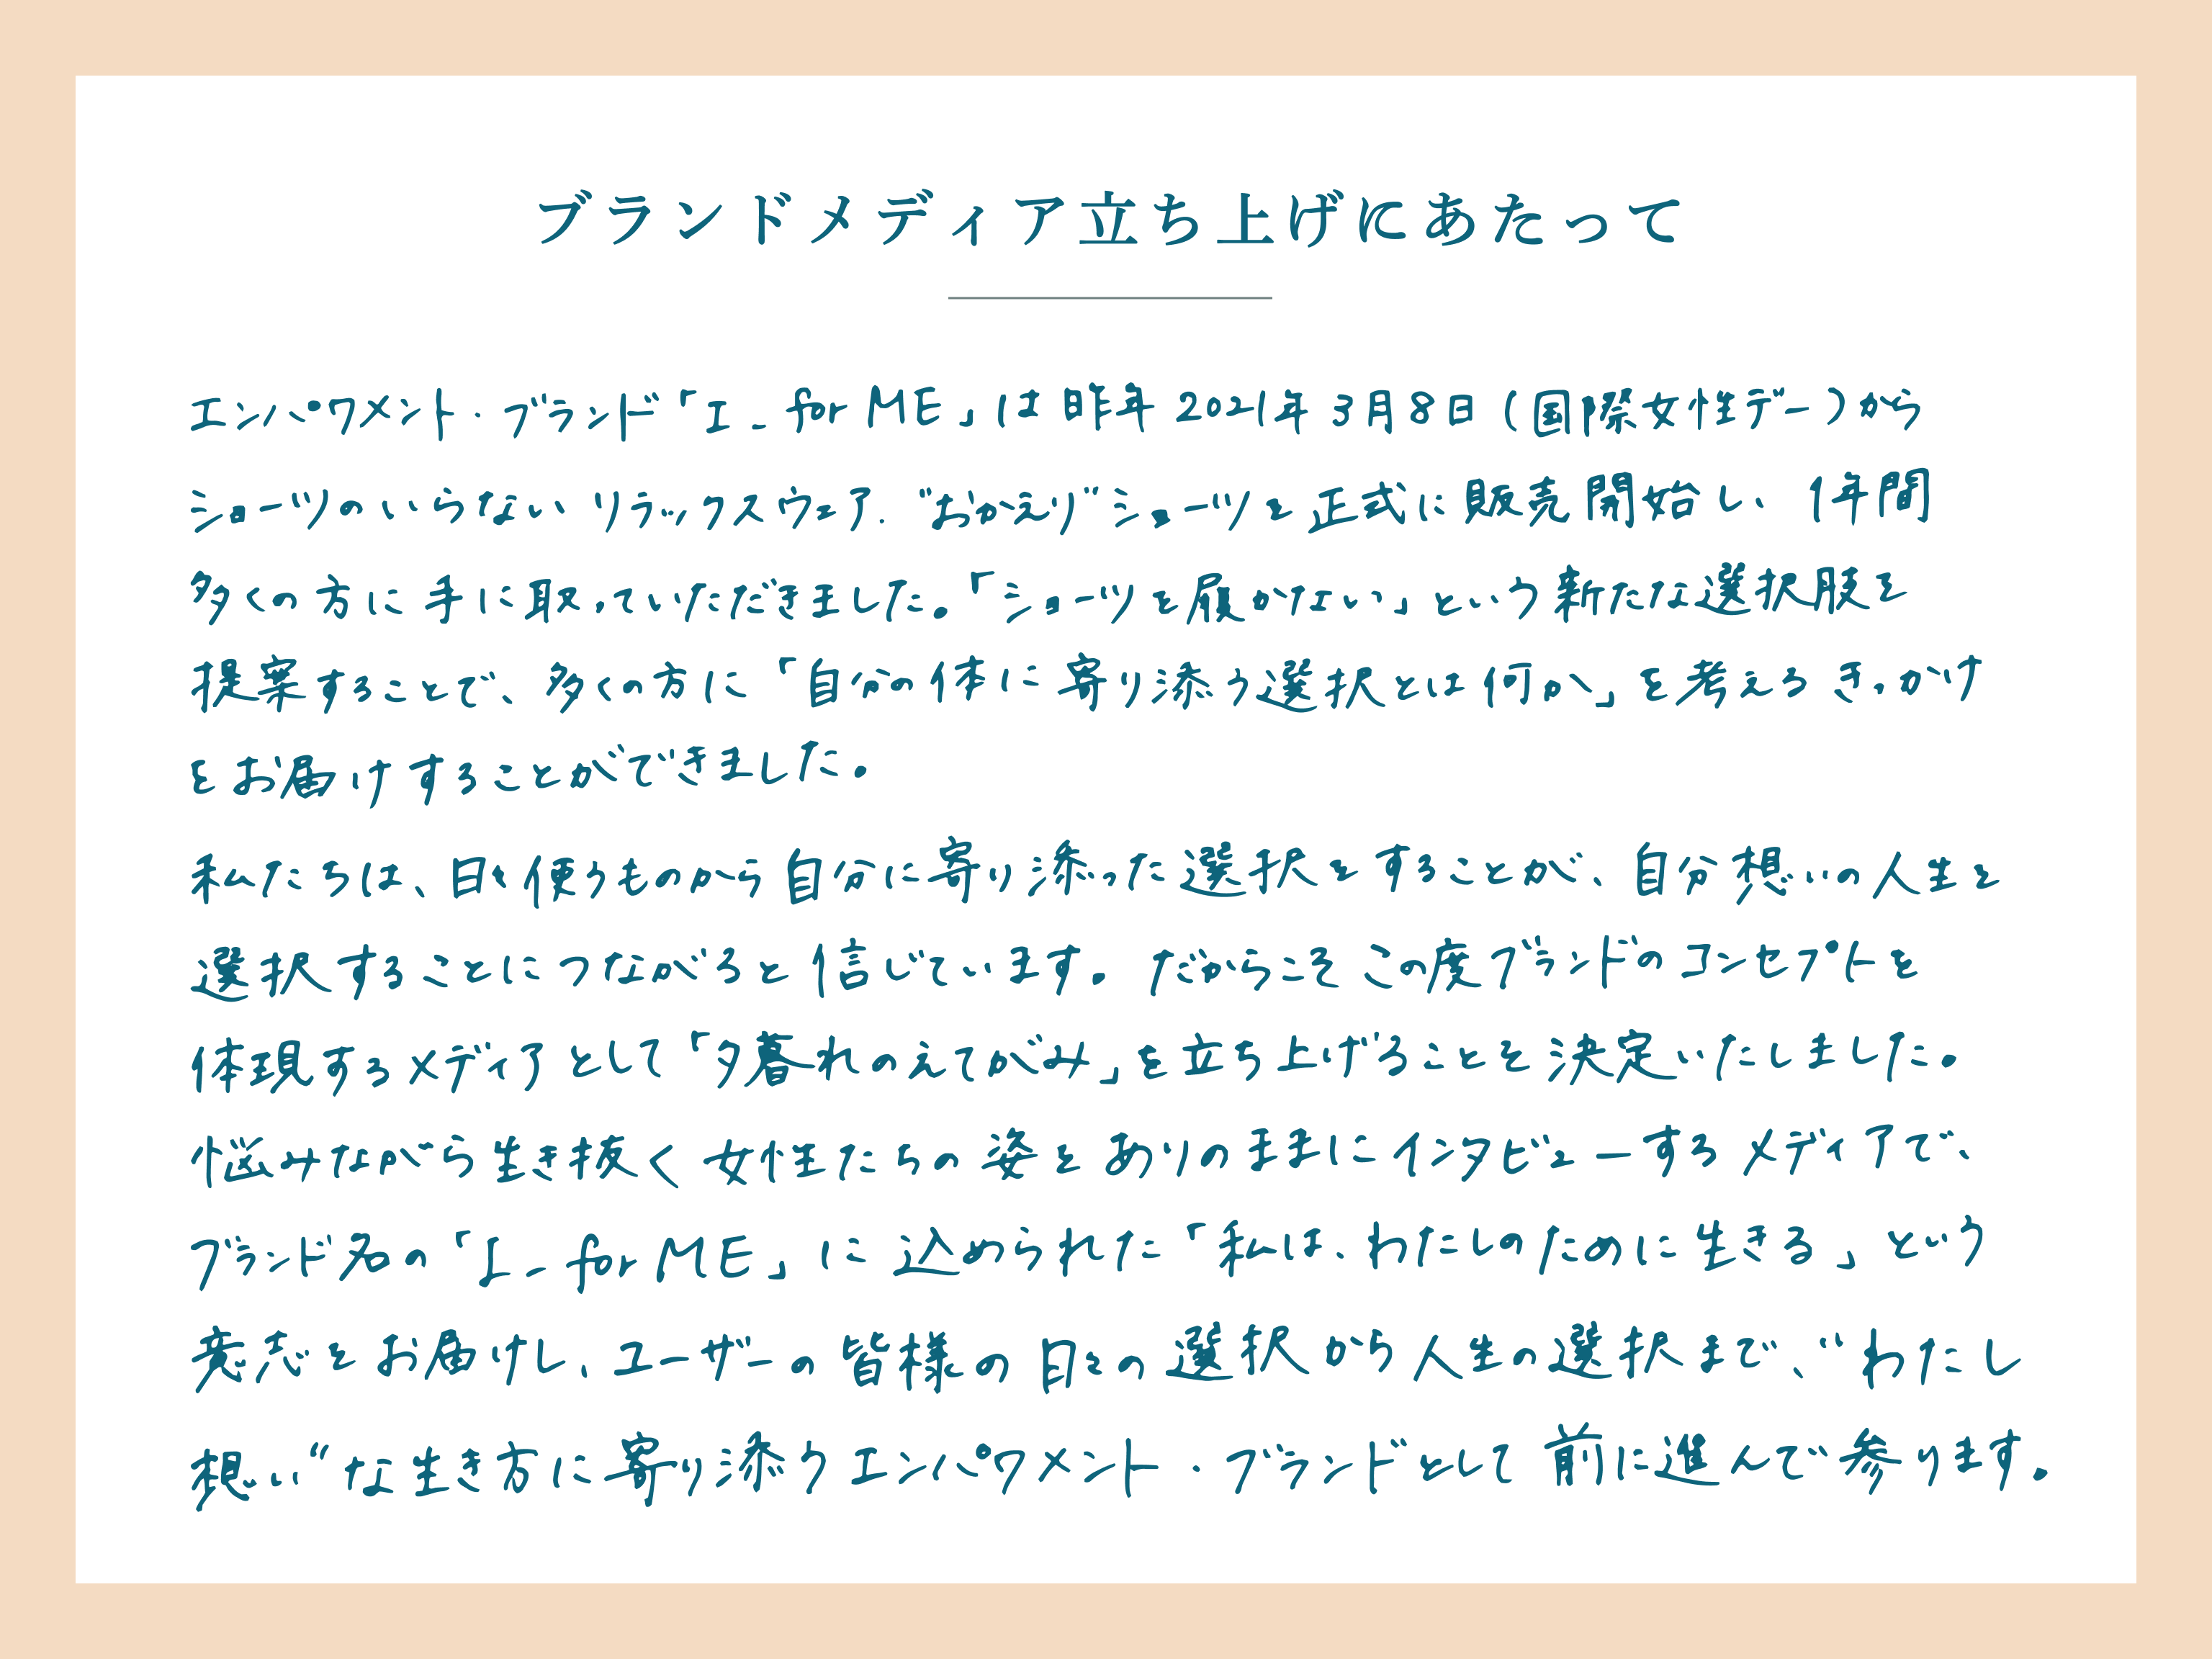 ブランドメディア立ち上げにあたって
エンパワメント・ブランド「I _ for ME」は昨年2021年3月8日（国際女性デー）から
ショーツのいらないリラックスウェア. “おかえり”ショーツを正式に販売開始し、1年間
多くの方に手に取っていただきました。「ショーツを履かない」という新たな選択肢を
提案することで、多くの方に「自分の体に寄り添う選択とは何か」を考えるきっかけ
をお届けすることができました。
私たちは、日々使うものから自分に寄り添った選択をすることが、自分想いの人生を
選択することにつながると信じています。だからこそこの度ブランドのコンセプトを
体現するメディアとして「夕暮れのえてがみ」を立ち上げることを決定いたしました。
悩みながら生き抜く女性たちの姿をありのままにインタビューするメディアで、
ブランド名の「I _ for ME」に込められた「私は、わたしのために生きる」という
意志をお届けし、ユーザーの皆様の日々の選択から人生の選択まで、“わたし
想い”な生き方に寄り添うエンパワメント・ブランドとして前に進んで参ります。